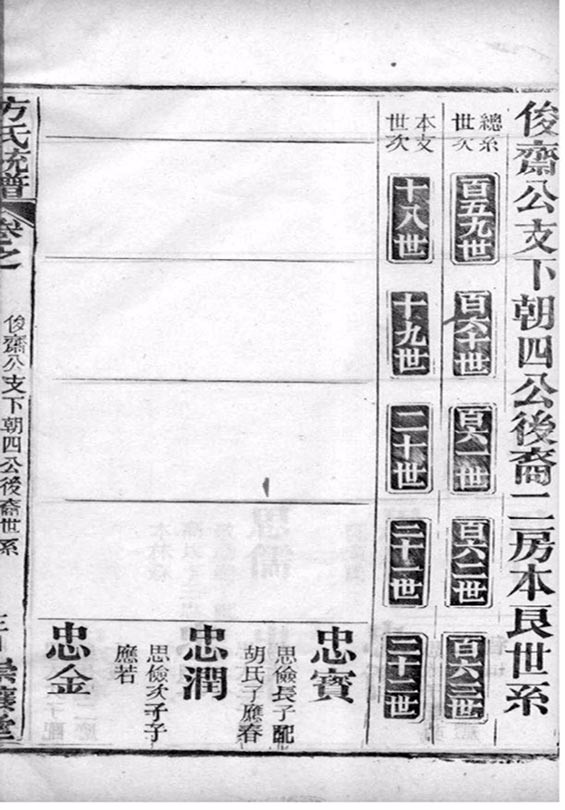 俊齋公支下朝四公後裔二房本艮世系
總系
世次
百五九世
百六十世
百六一世
百六二世
百六三世
本支
世次
十八世
十九世
二十世
二十一世
二十二世
忠賓
思儉長子配
胡氏子應春
忠潤
思儉次子子
應若
忠金
方氏統譜
卷之
俊齋公支下朝四公後裔世系